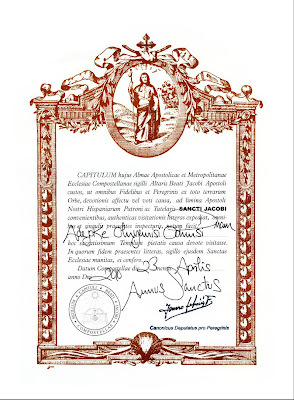 CAPITULUM hujus Almae Apostolicae et Metropolitanae
Ecclesiae Compostellanae sigilli Altaris Beati Jacobi Apostoli
custos, ut omnibus Fidelibus et Peregrinis ex toto terrarum
Orbe, devotionis affectu vel voti causa, ad limina Apostoli
Nostri Hispaniarum Patroni ac Tutelaris SANCTI JACOBI
convenientibus, authenticas visitationis litteras expediat, omni-
bus et singulis praesentes inspecturis, notum facit:
hoc sacratissimum Templum pietatis causa devote visitasse.
In quorum fidem praesentes litteras, sigillo ejusdem Sanctae
Ecclesiae munitas, ei confero.
Datum Compostellae die 23 mensis Aprilis
anno Dni
Annus Sanctus
Canonicus Deputatus pro Peregrinis